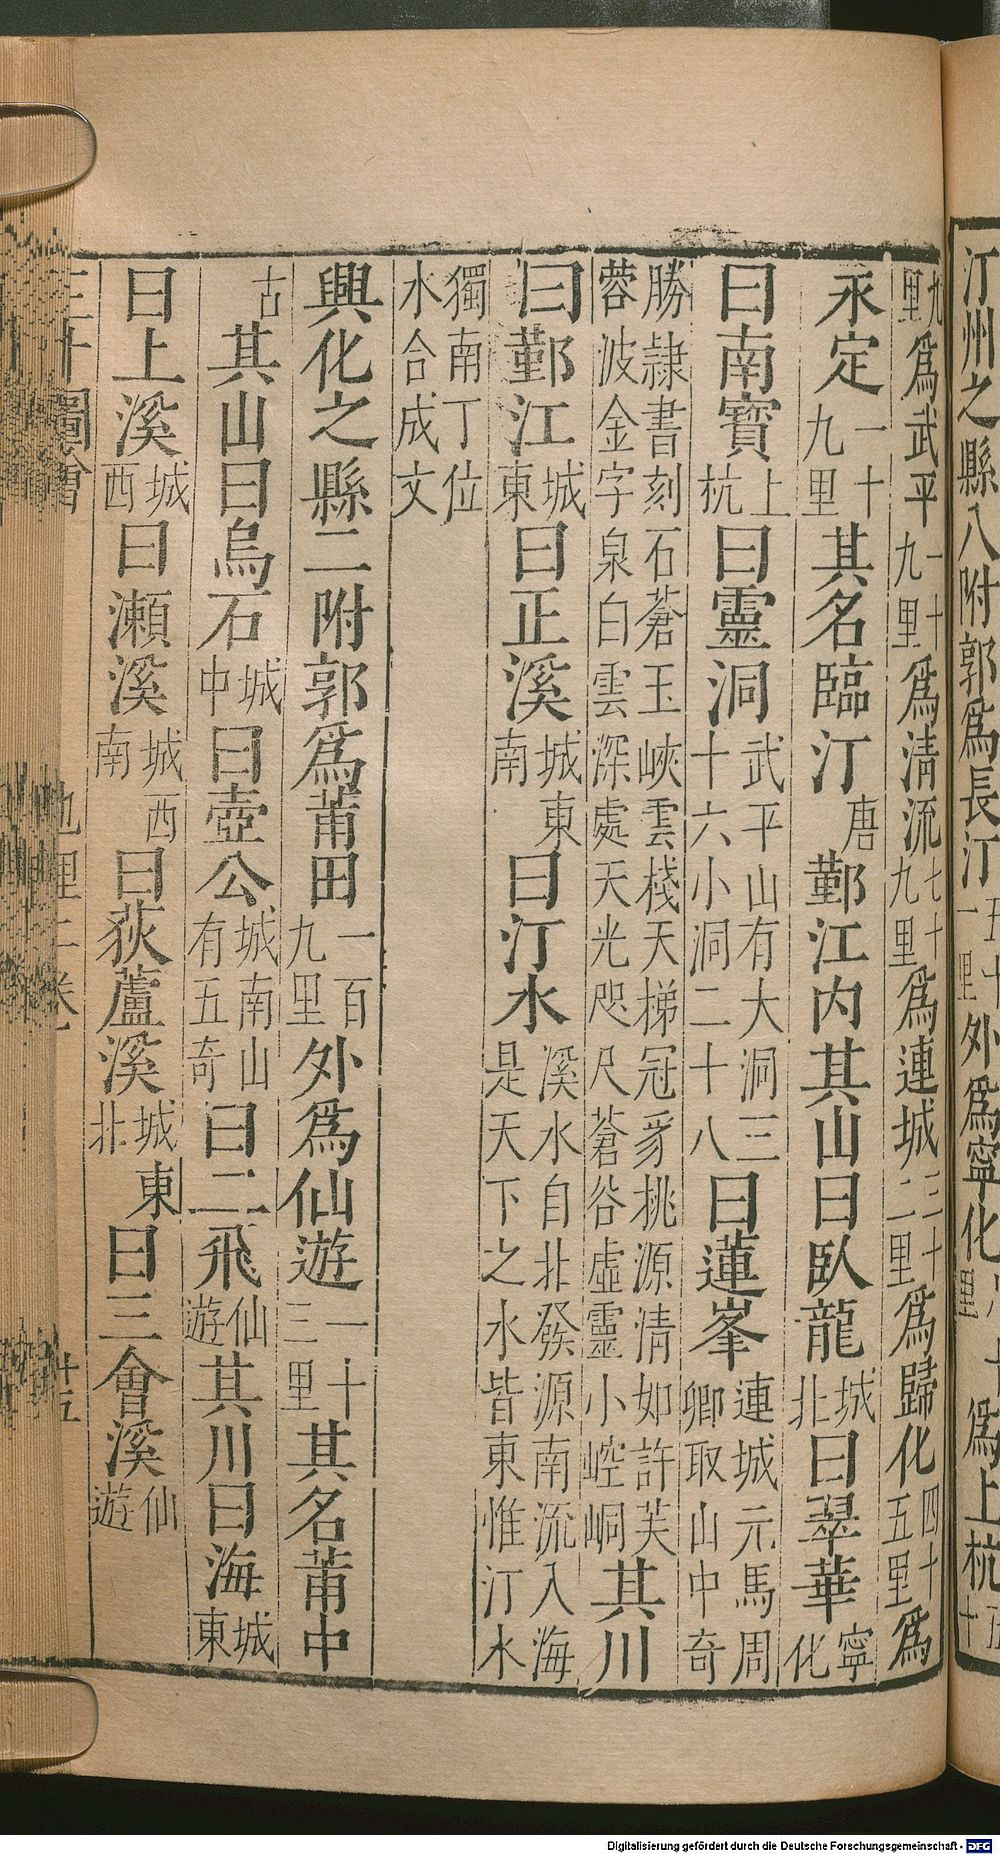 汀州之縣八附郭爲長汀五十一里外爲寧化
爲上杭
九里爲武平一十九里爲清流七十九里爲連城三十二里爲歸化四十五里爲
永定一十九里其名臨汀唐鄞江内其山曰臥龍城北曰翠華寧化
曰南寶上杭曰靈洞武平山有大洞三十六小洞二十八曰蓮峯連城元馬周卿取山中奇
勝隷書刻石蒼玉峽雲棧天梯冠豸桃源清如許芙蓉波金字泉白雲深處天光咫尺蒼谷虛靈小崆峒其川
曰鄞江城東曰正溪城東南曰汀水溪水自北發源南流入海是天下之水皆東惟汀水
獨南丁位水合成文
興化之縣二附郭爲莆田一百九里外爲仙遊一十三里其名莆中
古其山曰烏石城中曰壺公城南山有五奇曰二飛仙遊其川曰海城東
曰上溪城西曰瀨溪城西南曰荻蘆溪城東北曰三會溪仙遊
圖會
十五
Digitalisierung gefördert durch die Deutsche Forschungsgemeinschaft - DFG